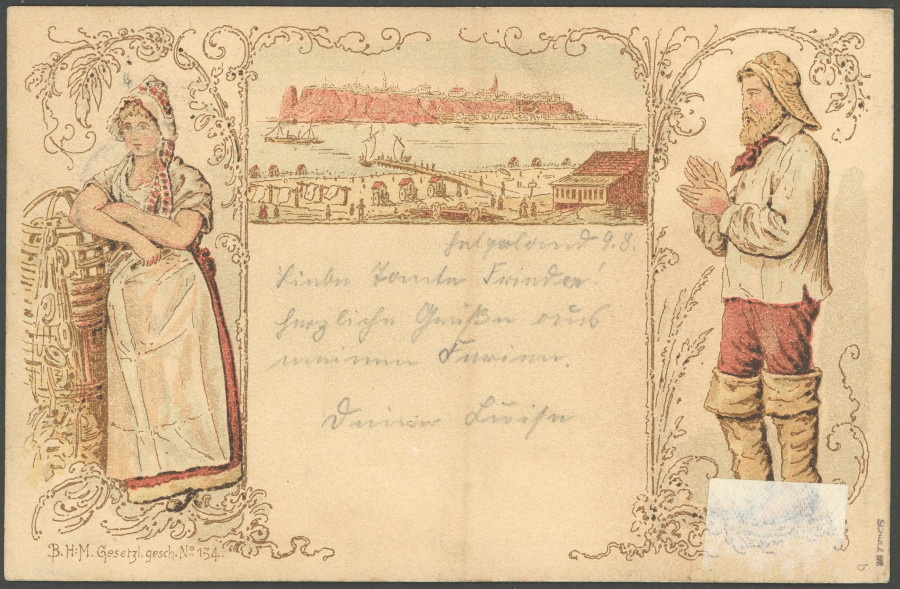 Helgoland 9.8.
Liebe Tante Frieda!
herzliche Grüße aus
meinen Ferien.
Deine Luise
B.H:M. Gesetzl. gesch. No 134.
SCHULZ
b